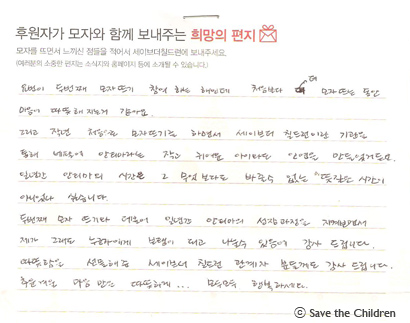 후원자가 모자와 함께 보내주는 희망의 편지
모자를 뜨면서 느끼신 점들을 적어서 세이브더칠드런에 보내주세요.
(여러분의 소중한 편지는 소식지와 홈페이지 등에 소개될 수 있습니다.)
두번째 모자 뜨기 참여 하는 해인데 처음보다 더 모자 뜨는 동안
마음이 따뜻해 지는거 같아요.
그리고 작년 처음으로 모자뜨기를 하면서 세이브더 칠드런이란 기관을
통해 네팔에 안티마라는 작고 귀여운 아이와도 인연을 만들었거든요.
일년간 안티마의 시간은 그 무엇보다도 바꿀수 없는 뜻깊은 시간이
아니었나 싶습니다.
두번째 모자 뜨기와 더불어 일년간 안티마의 성장과정을 지켜보면서
제가 그래도 누군가에게 보탬이 되고 나눌수 있음에 감사 드립니다.
따뜻함을 선물해준 세이브더 칠드런 관계자 분들께도 감사 드립니다.
추운 겨울 마음 만은 따뜻하게... 모두모두 행복하세요.
ⓒ Save the Children